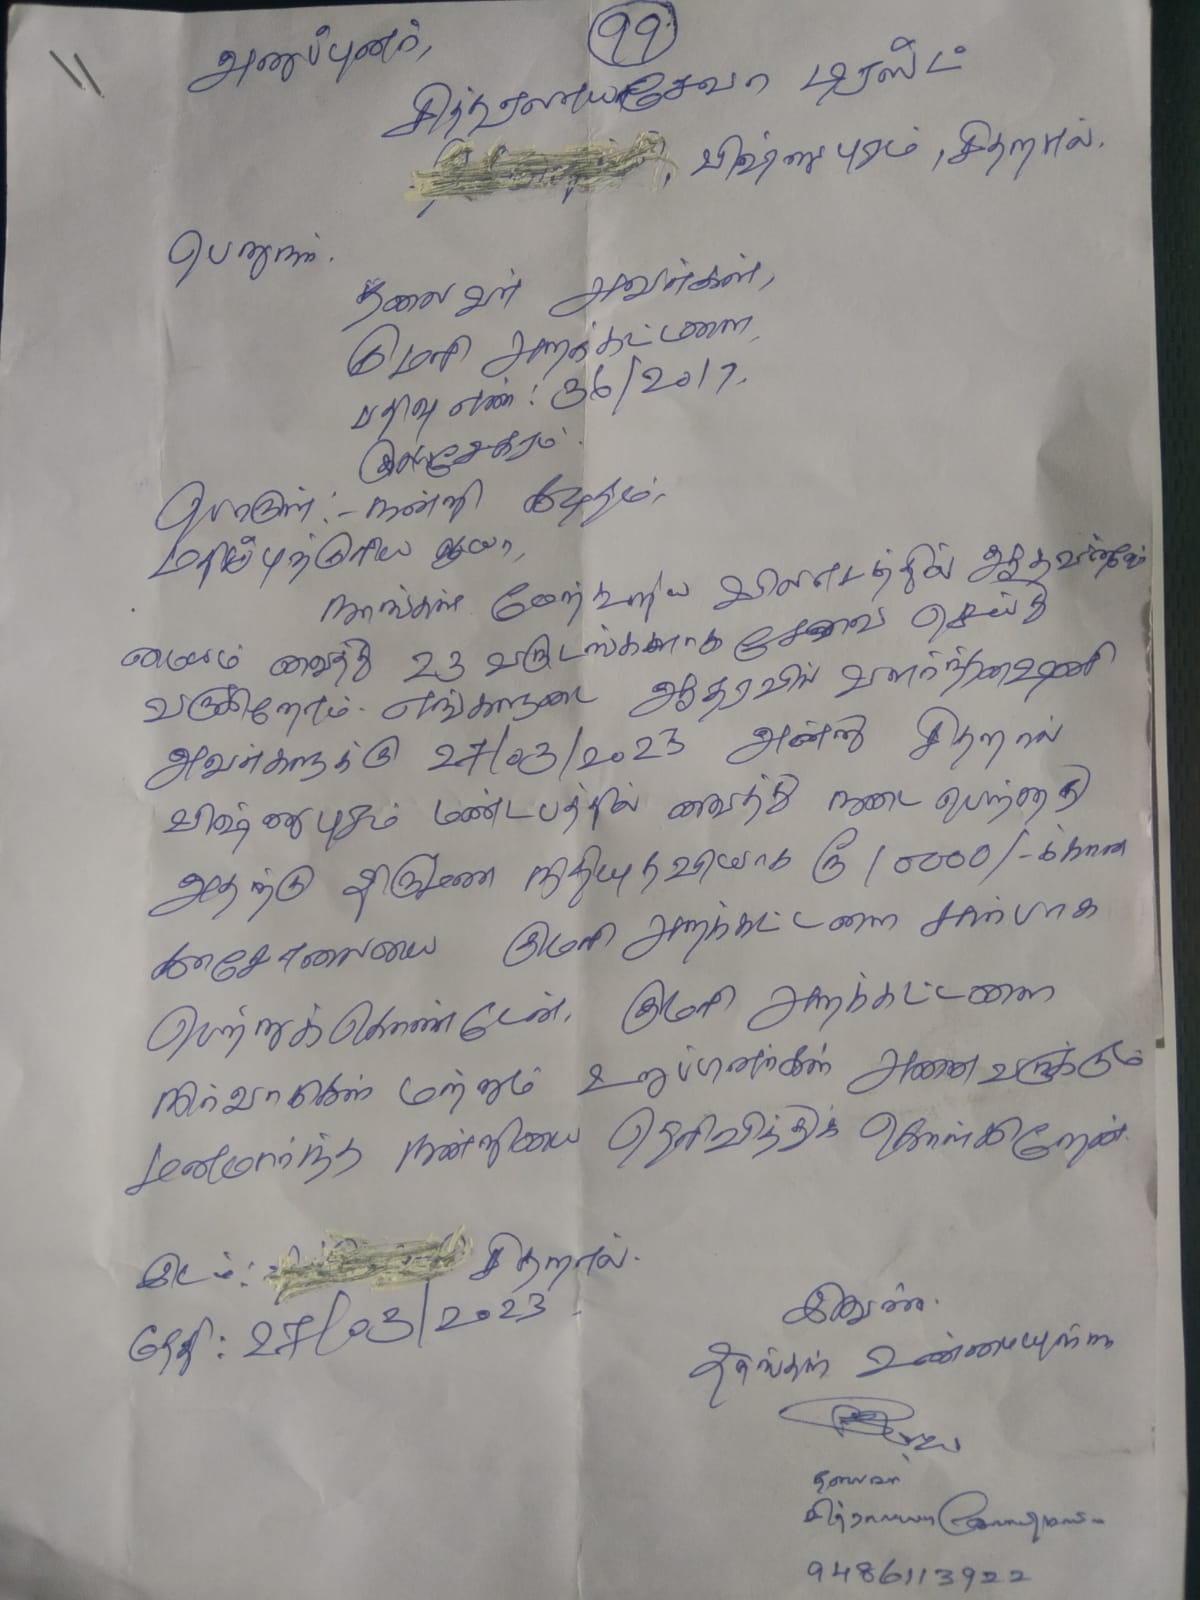 99
11
அனுப்புனர்,
சித்ராலயா சேவா டிரஸ்ட்
விஷ்னுபுரம், சிதறால்.
பெறுநர்.
தலைவர் அவர்கள்,
குமரி அறக்கட்டளை,
பதிவு எண்: 36/2017,
குலசேகரம்.
பொருள்:- நன்றி கடிதம்,
மதிப்பிற்குரிய ஐயா,
நாங்கள் மேற்கூறிய விலாசத்தில்
மையம் வைத்து 23 வருடங்களாக சேவை செய்து
வருகிறோம். எங்களுடைய ஆதரவில் வளர்ந்த
அவர்களுக்கு 27/03/2023 அன்று சிதறால்
விஷ்னுபுரம் மண்டபத்தில் வைத்து நடைபெற்றது
அதற்கு திருமண நிதியுதவியாக ரூ 10000/-க்கான
காசோலையை குமரி அறக்கட்டளை சார்பாக
பெற்றுக்கொண்டேன், குமரி அறக்கட்டளை
நிர்வாகிகள் மற்றும் உறுப்பினர்கள் அனைவருக்கும்
மனமார்ந்த நன்றியை தெரிவித்துக் கொள்கிறேன்.
இடம்: சிதறால்.
தேதி: 27/03/2023
இவண்.
தங்கள் உண்மையுள்ள
தலைவர்
சித்ராலயா
9486113922